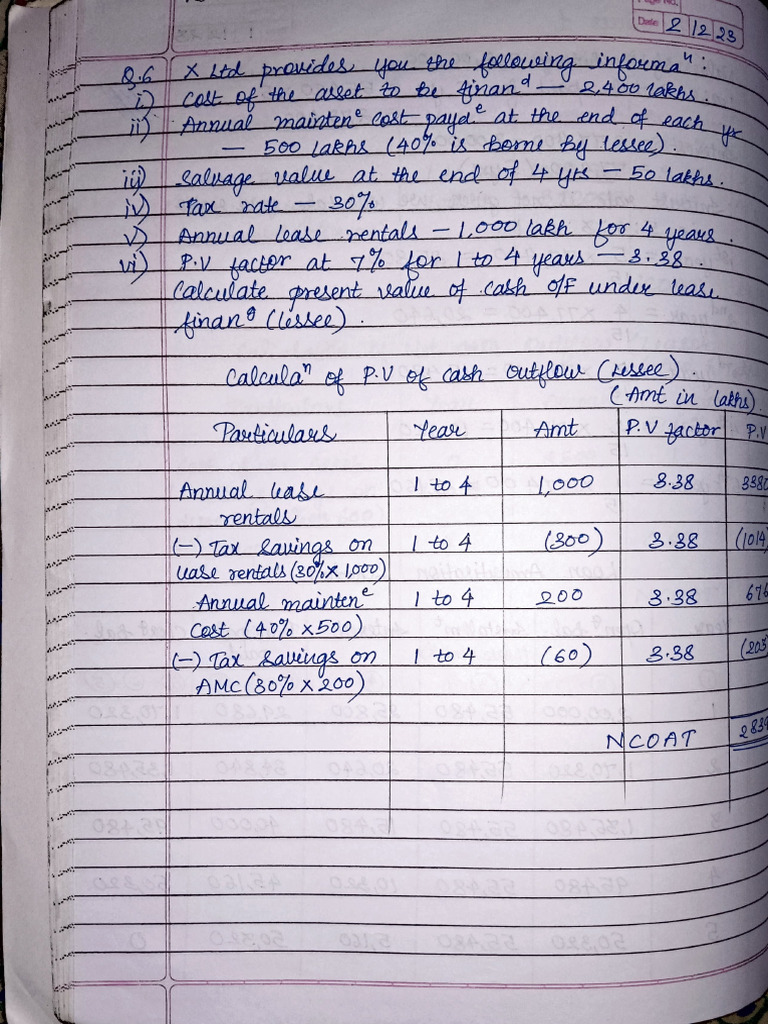 Page No.
Date 2 12 23
Q.6 X Ltd provides you the following informaⁿ:
i) Cost of the asset to be finanᵈ — 2,400 lakhs.
ii) Annual maintenᵉ cost payaᵉ at the end of each yr
— 500 lakhs (40% is borne by lessee).
iii) Salvage value at the end of 4 yrs — 50 lakhs.
iv) Tax rate — 30%
v) Annual lease rentals — 1,000 lakh for 4 years.
vi) P.V factor at 7% for 1 to 4 years — 3.38.
Calculate present value of cash o/F under lease
finanᵍ (lessee).
Calculaⁿ of P.V of cash outflow (lessee).
(Amt in lakhs).
Particulars Year Amt P.V factor P.V
Annual lease 1 to 4 1,000 3.38 3380
rentals
(-) Tax Savings on 1 to 4 (300) 3.38 (1014)
lease rentals (30% x 1,000)
Annual maintenᵉ 1 to 4 200 3.38 676
Cost (40% x 500)
(-) Tax Savings on 1 to 4 (60) 3.38 (203
AMC (30% x 200)
NCOAT 2839